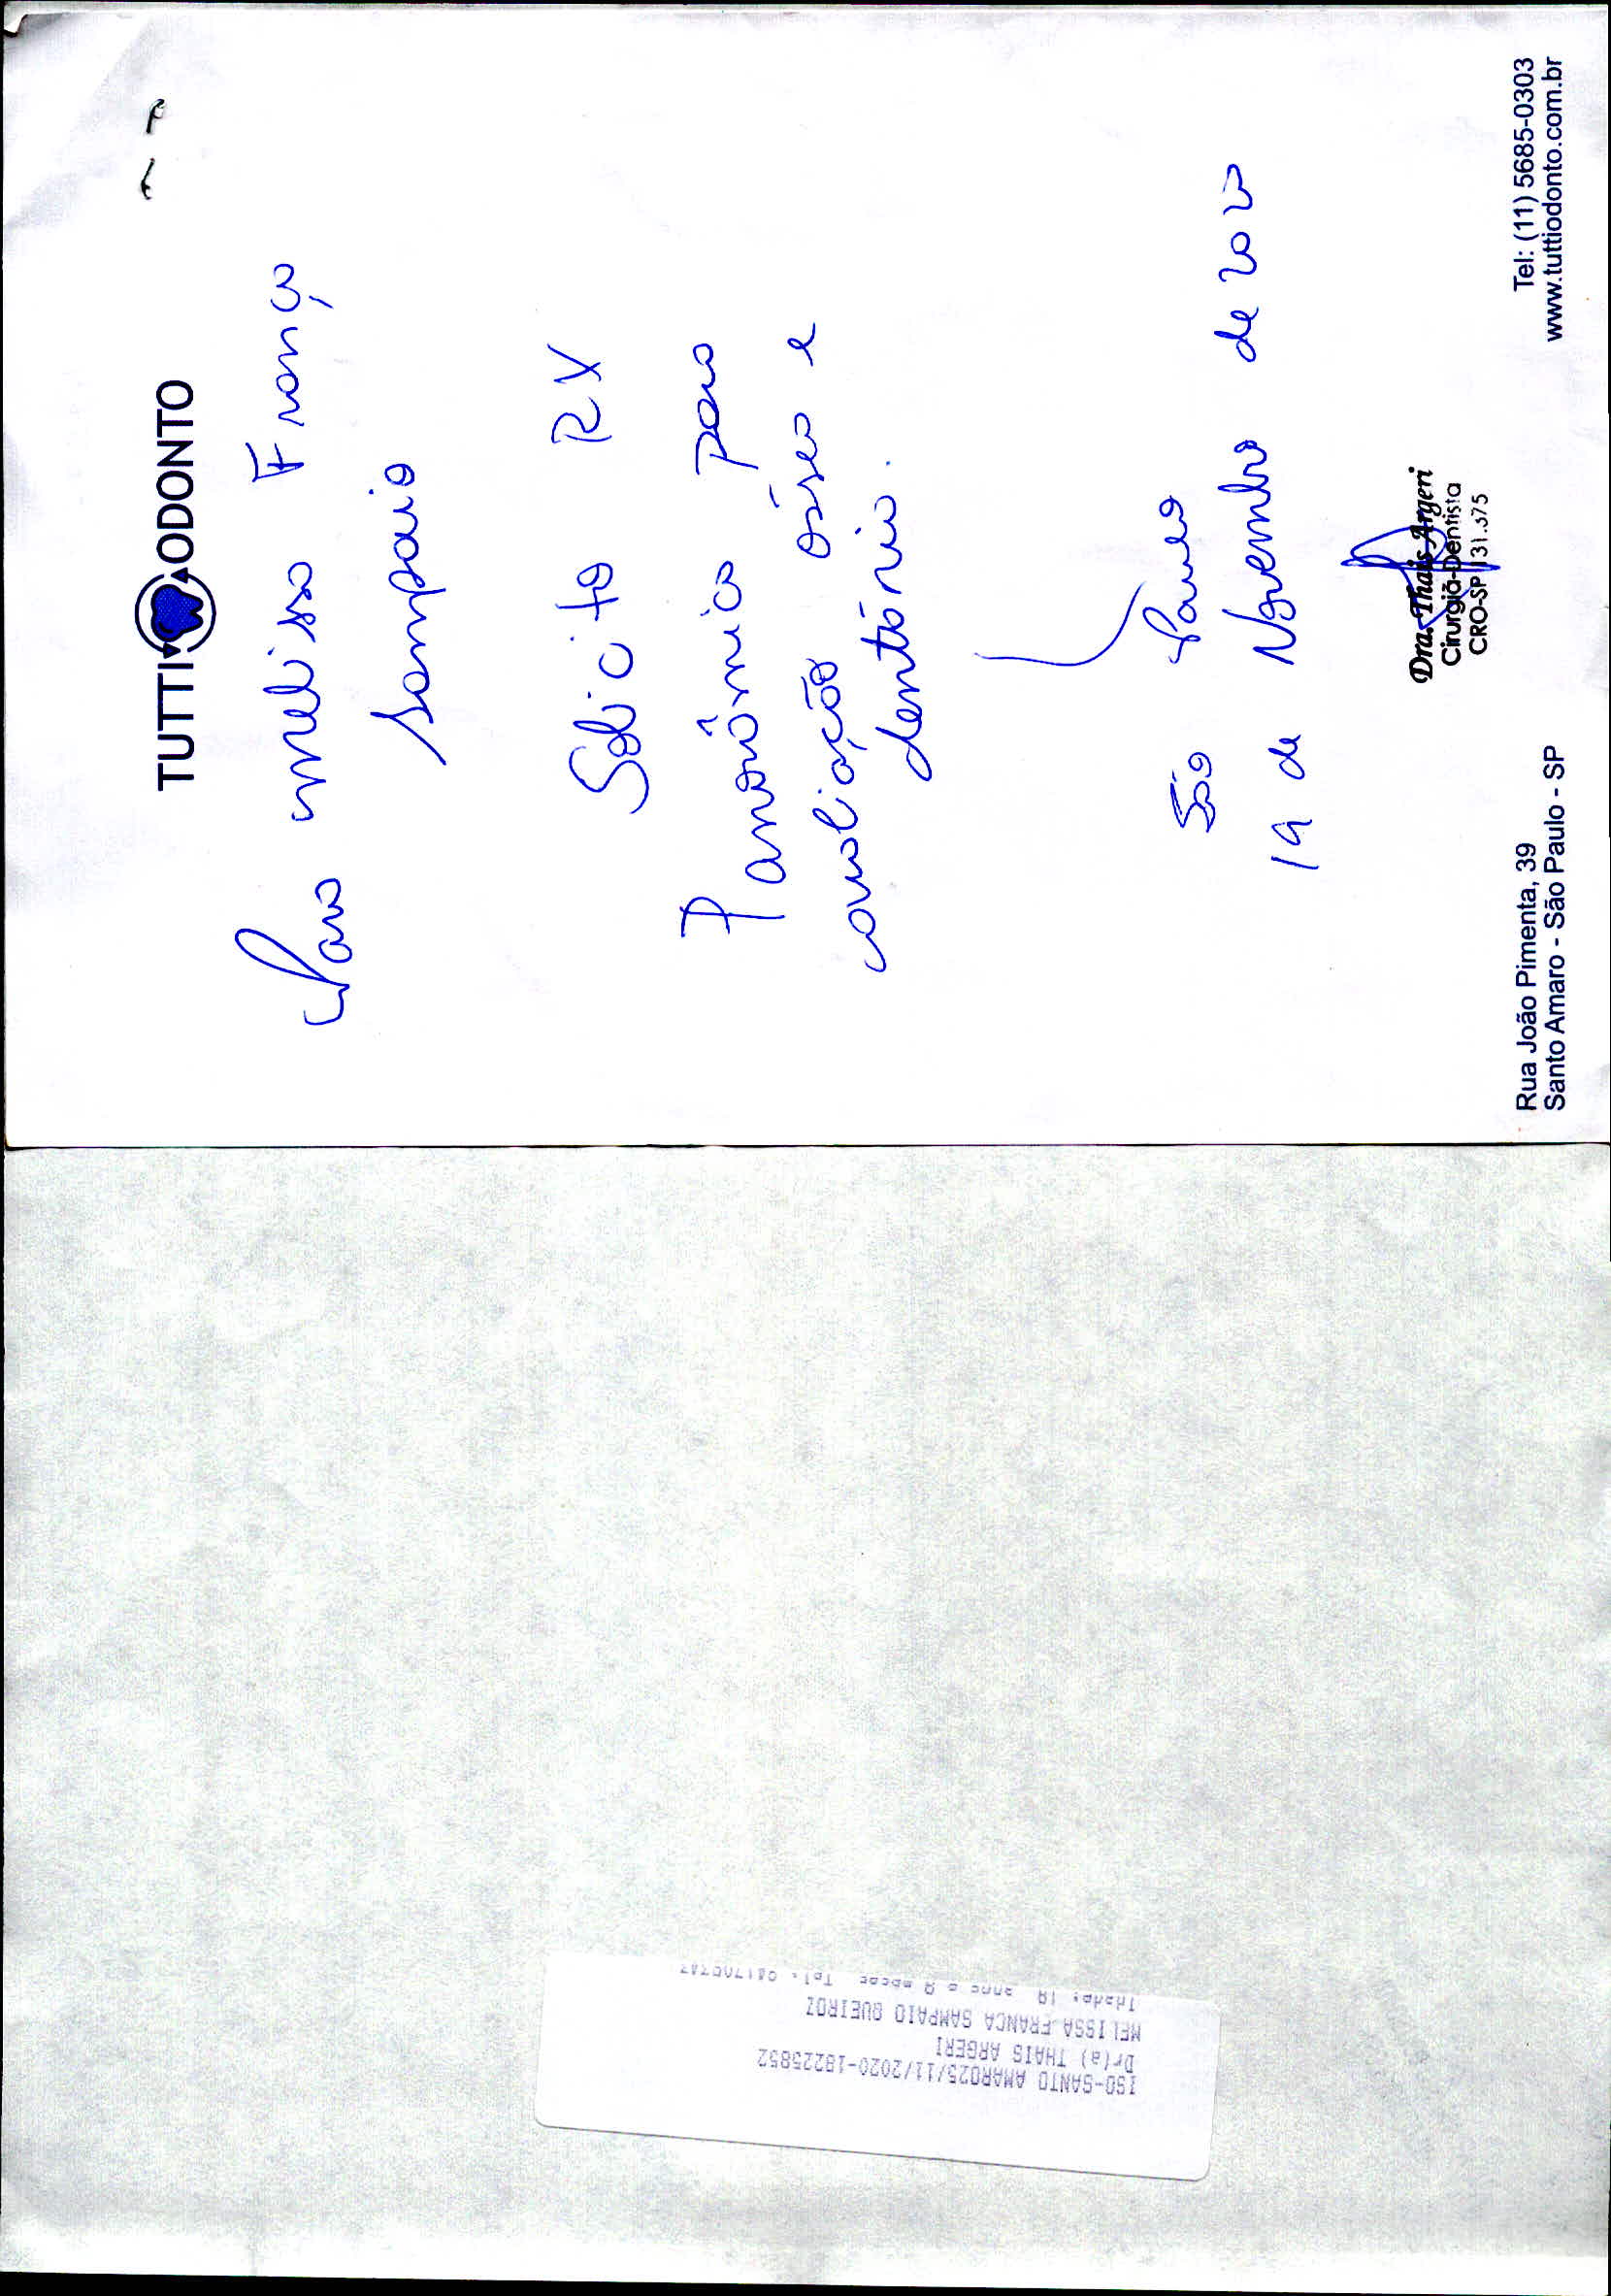 TUTTI ODONTO
Para Melissa França
Sampaio
Solicito RX
Panorâmica para
avaliação ósseo e
dentário.
São Paulo
19 de Novembro de 2020
Dra. Thais Argeri
Cirurgiã-Dentista
CRO-SP 131.575
Rua João Pimenta, 39
Santo Amaro - São Paulo - SP
Tel: (11) 5685-0303
www.tuttiodonto.com.br
ISO-SANTO AMARO25/11/2020-18225852
Dr(a) THAIS ARGERI
MELISSA FRANCA SAMPAIO QUEIROZ
Idade: 18 anos e 8 meses Tel: